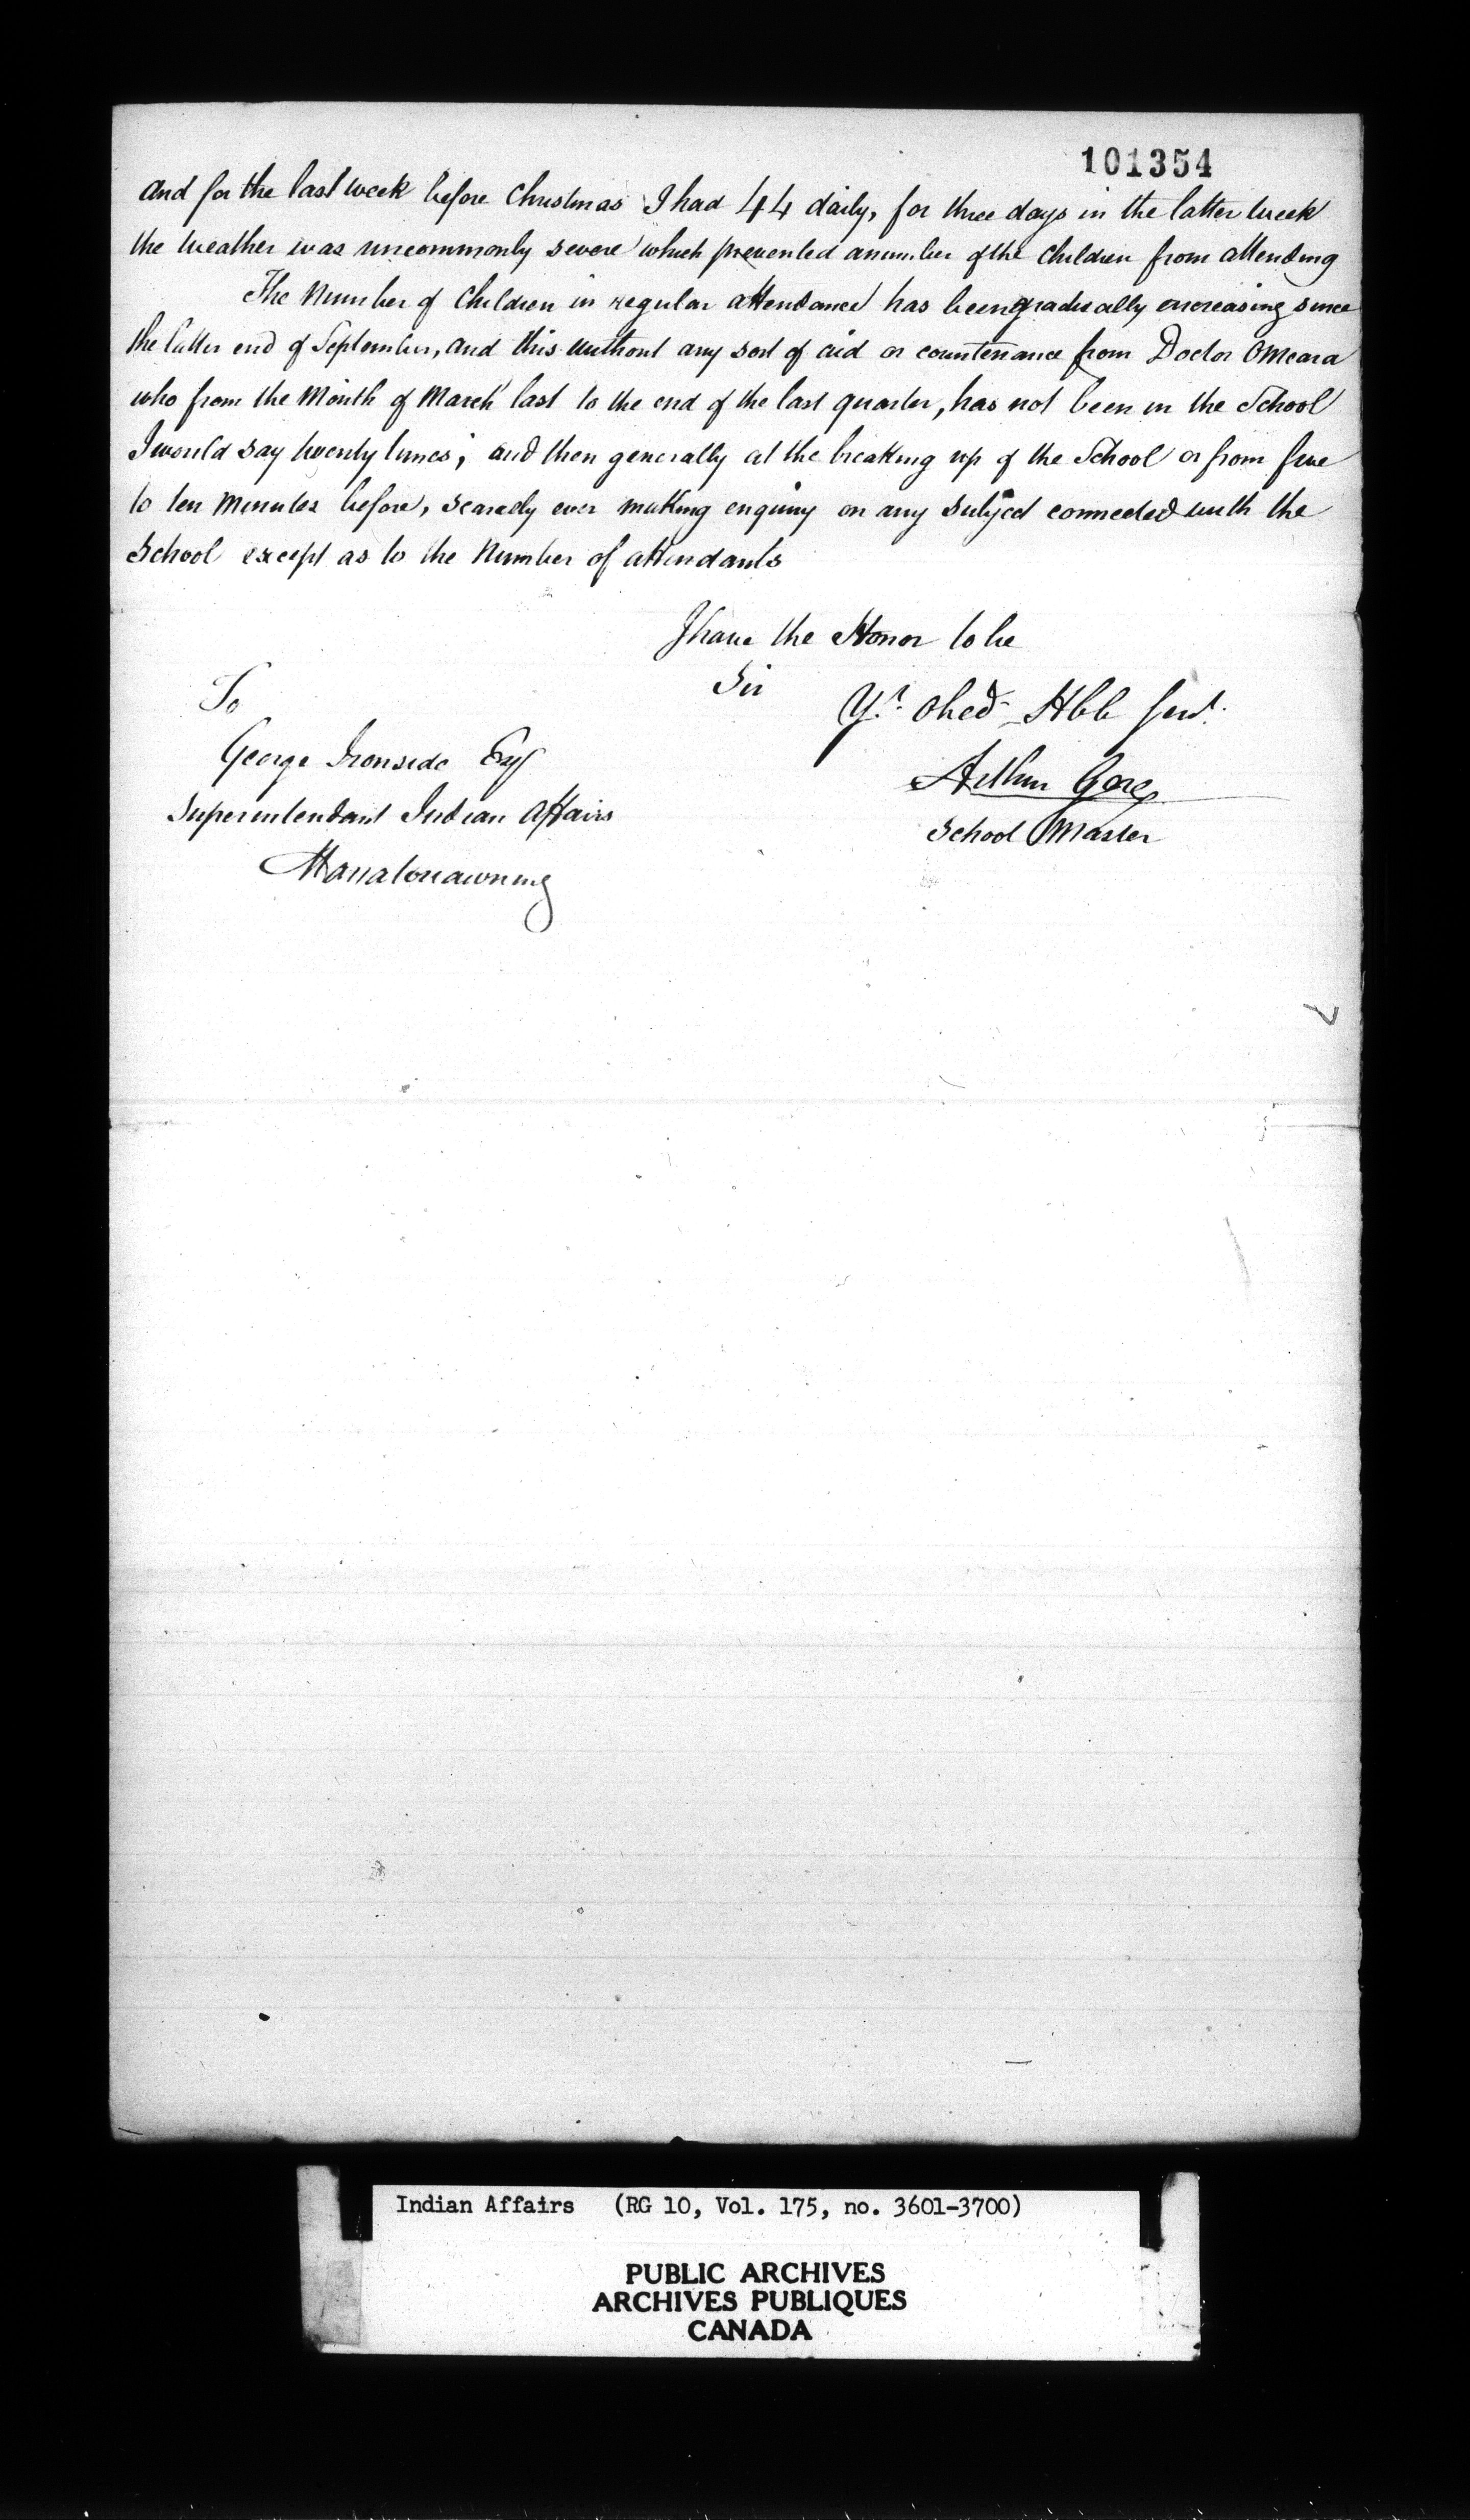 101354
and for the last week before Christmas I had 44 daily, for three days in the latter week
the weather was uncommonly severe which prevented a number of the children from attending
The Number of Children in regular attendance has been gradually encreasing since
the latter end of September, and this without any sort of aid or countenance from Doctor OMeara
who from the Month of March last to the end of the last quarter, has not been in the School
I would say twenty times; and then generally at the breaking up of the School or from five
to ten Minutes before, scarcely ever making enquiry on any subject connected with the
School except as to the Number of attendants
I have the Honor to be
Sir
Yr. Obed Hble Servt.
Arthur Gore
School Master
To
George Ironside Esq
Superintendant Indian Affairs
Manatouawning
Indian Affairs (RG 10, Vol. 175, no. 3601-3700)
PUBLIC ARCHIVES
ARCHIVES PUBLIQUES
CANADA